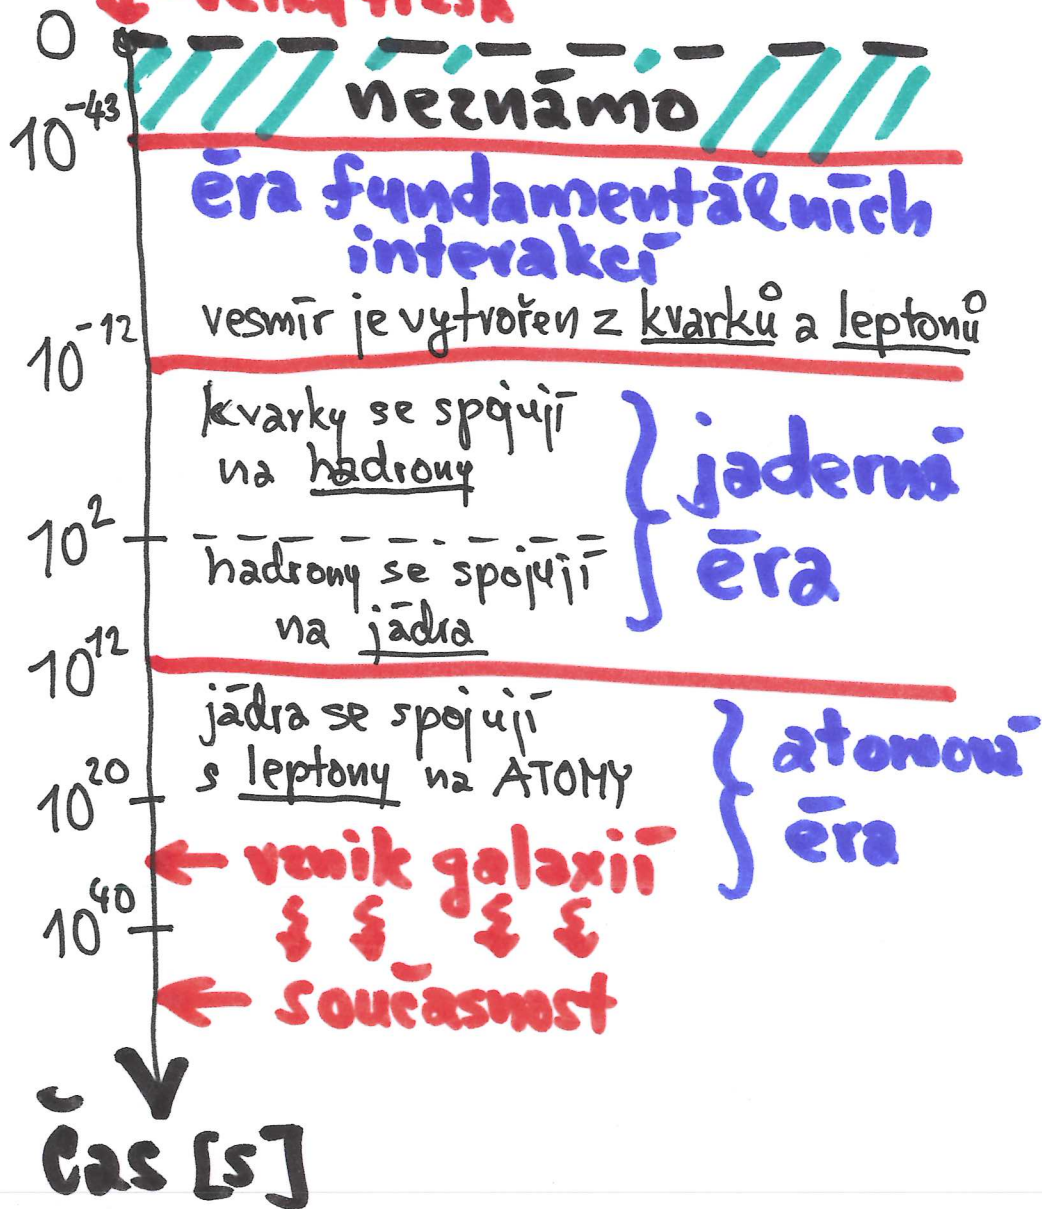 velký třesk
0
neznámo
10^-43
éra fundamentálních
interakcí
vesmír je vytvořen z kvarků a leptonů
10^-12
kvarky se spojují
na hadrony
jaderná
éra
10^2
hadrony se spojují
na jádra
10^12
jádra se spojují
s leptony na ATOMY
atomová
éra
10^20
vznik galaxií
10^40
současnost
Čas [s]